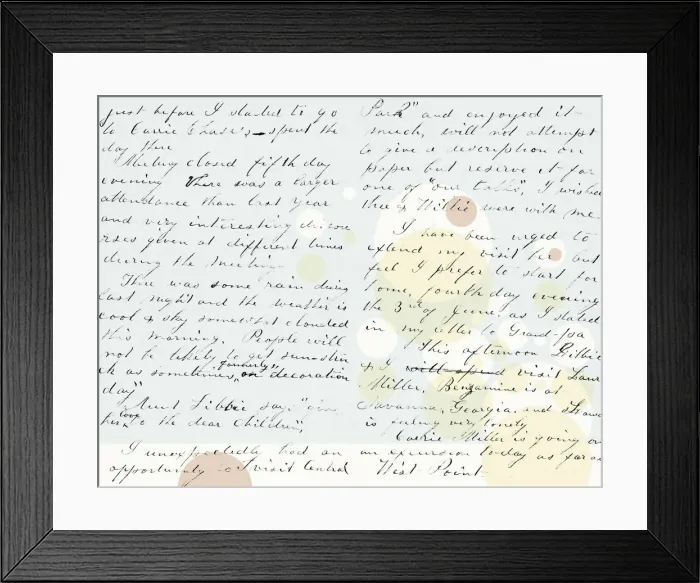 just before I started to go
to Carrie Chase's - spent the
day there
Meeting closed fifth day
evening There was a larger
attendance than last year
and very interesting discou
rses given at different times
during the meeting.
There was some rain during
last night and the weather is
cool & sky somewhat clouded
this morning. People will
not be likely to get sunstru
ck as sometimes, formerly, on decoration
day"
Aunt Libbie says "give
her love to the dear children",
I unexpectedly had an
opportunity to visit Central
Park" and enjoyed it
much, will not attempt
to give a description on
paper but reserve it for
one of "our talks", I wished
thee & Willie were with me.
I have been urged to
extend my visit but
feel I prefer to start for
home, fourth day evening
the 3rd of June, as I stated
in my letter to Grand-pa
This afternoon Lillie
& I will spend visit Laura
Miller, Benjamine is at
Savanna, Georgia, and Laura
is feeling very lonely
Carrie Miller is going on
an excursion today as far as
West Point.